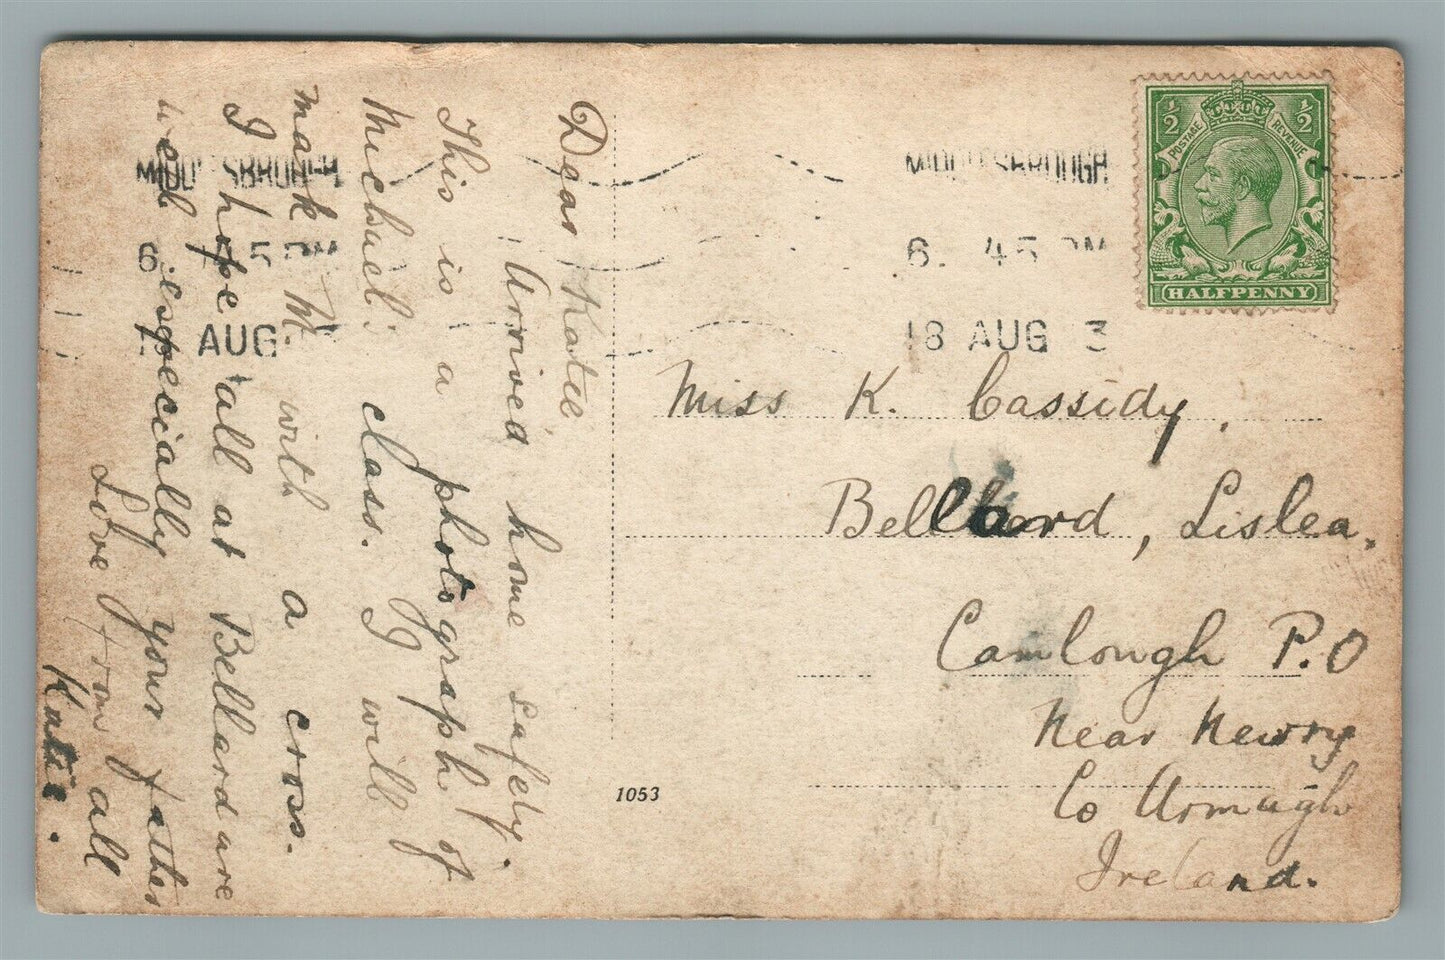 Dear Katie
Arrived home safely.
This is a photograph of
Michael's class. I will
mark M with a cross.
I hope all at Bellard are
well especially your father
Love from all
Katie.
MIDDLESBROUGH
6. 45 PM
AUG
MIDDLESBROUGH
6. 45 PM
18 AUG 3
½ ½
POSTAGE REVENUE
HALFPENNY
Miss K. Cassidy,
Bellard, Lislea,
Camlough P.O
Near Newry
Co Armagh
Ireland.
1053